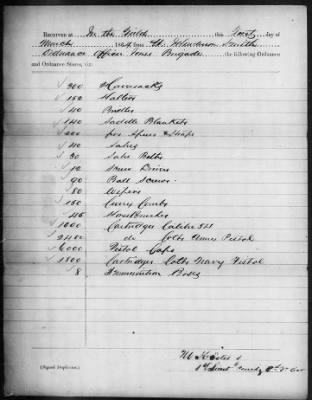 Received at In the Field this First day of
March 1864 from Lt. Henderson Smith
Ordnance Officer Jones Brigade, the following Ordnance
and Ordnance Stores, viz:
300 Haversacks
150 Halters
40 Bridles
140 Saddle Blankets
200 prs Spurs & Straps
40 Sabres
30 Sabre Belts
12 Screw Drivers
90 Ball Screws
80 Wipers
150 Curry Combs
45 Horse Brushes
1000 Cartridges Calibre 54
2400 do Colts Army Pistol
6000 Pistol Caps
1800 Cartridges Colts Navy Pistol
8 Ammunition Boxes
(Signed Duplicates.)
1st Lieut